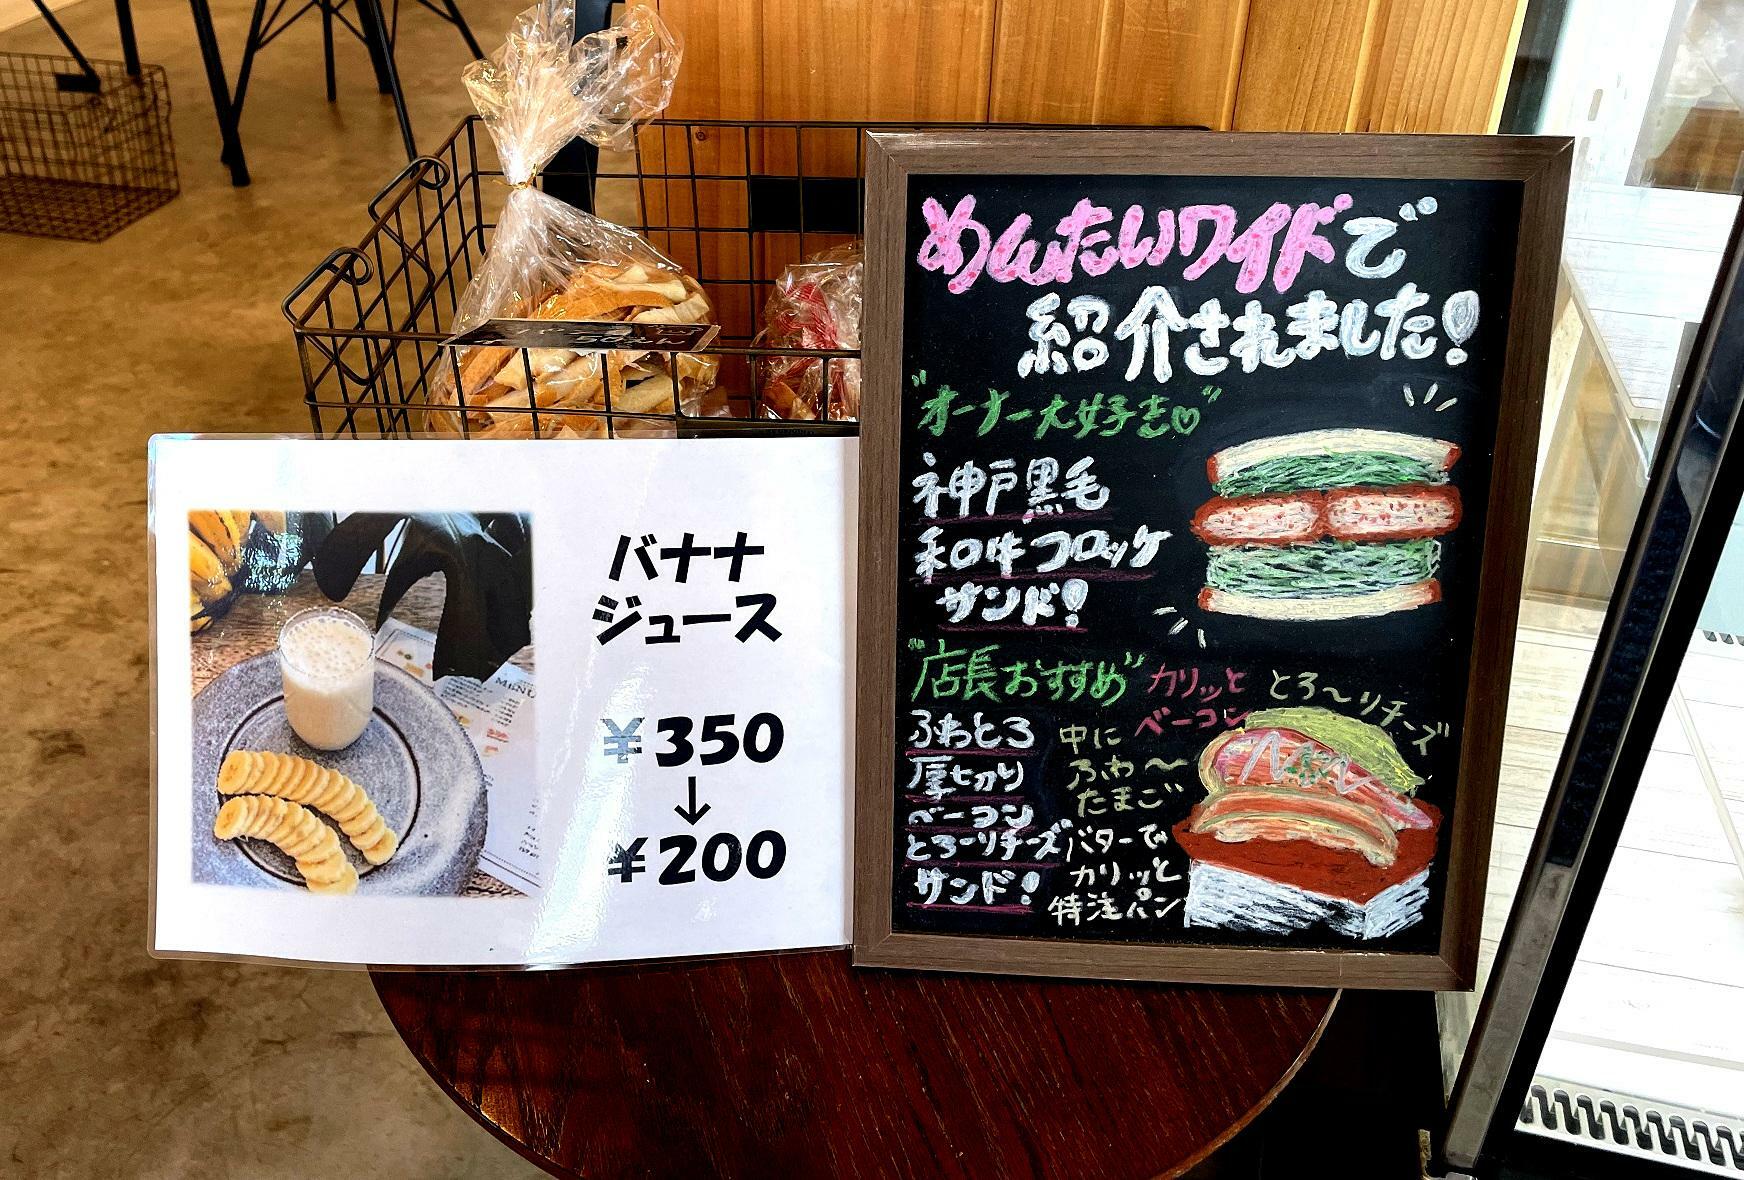 バナナ
ジュース
¥350
↓
¥200
めんたいワイドで
紹介されました!
"オーナー大好き♡"
神戸黒毛
和牛コロッケ
サンド!
"店長おすすめ"
ふわとろ
厚切り
ベーコン
とろーりチーズ
サンド!
カリッと
ベーコン
とろ〜りチーズ
中に
ふわ〜
たまご
バターで
カリッと
特注パン
MENU